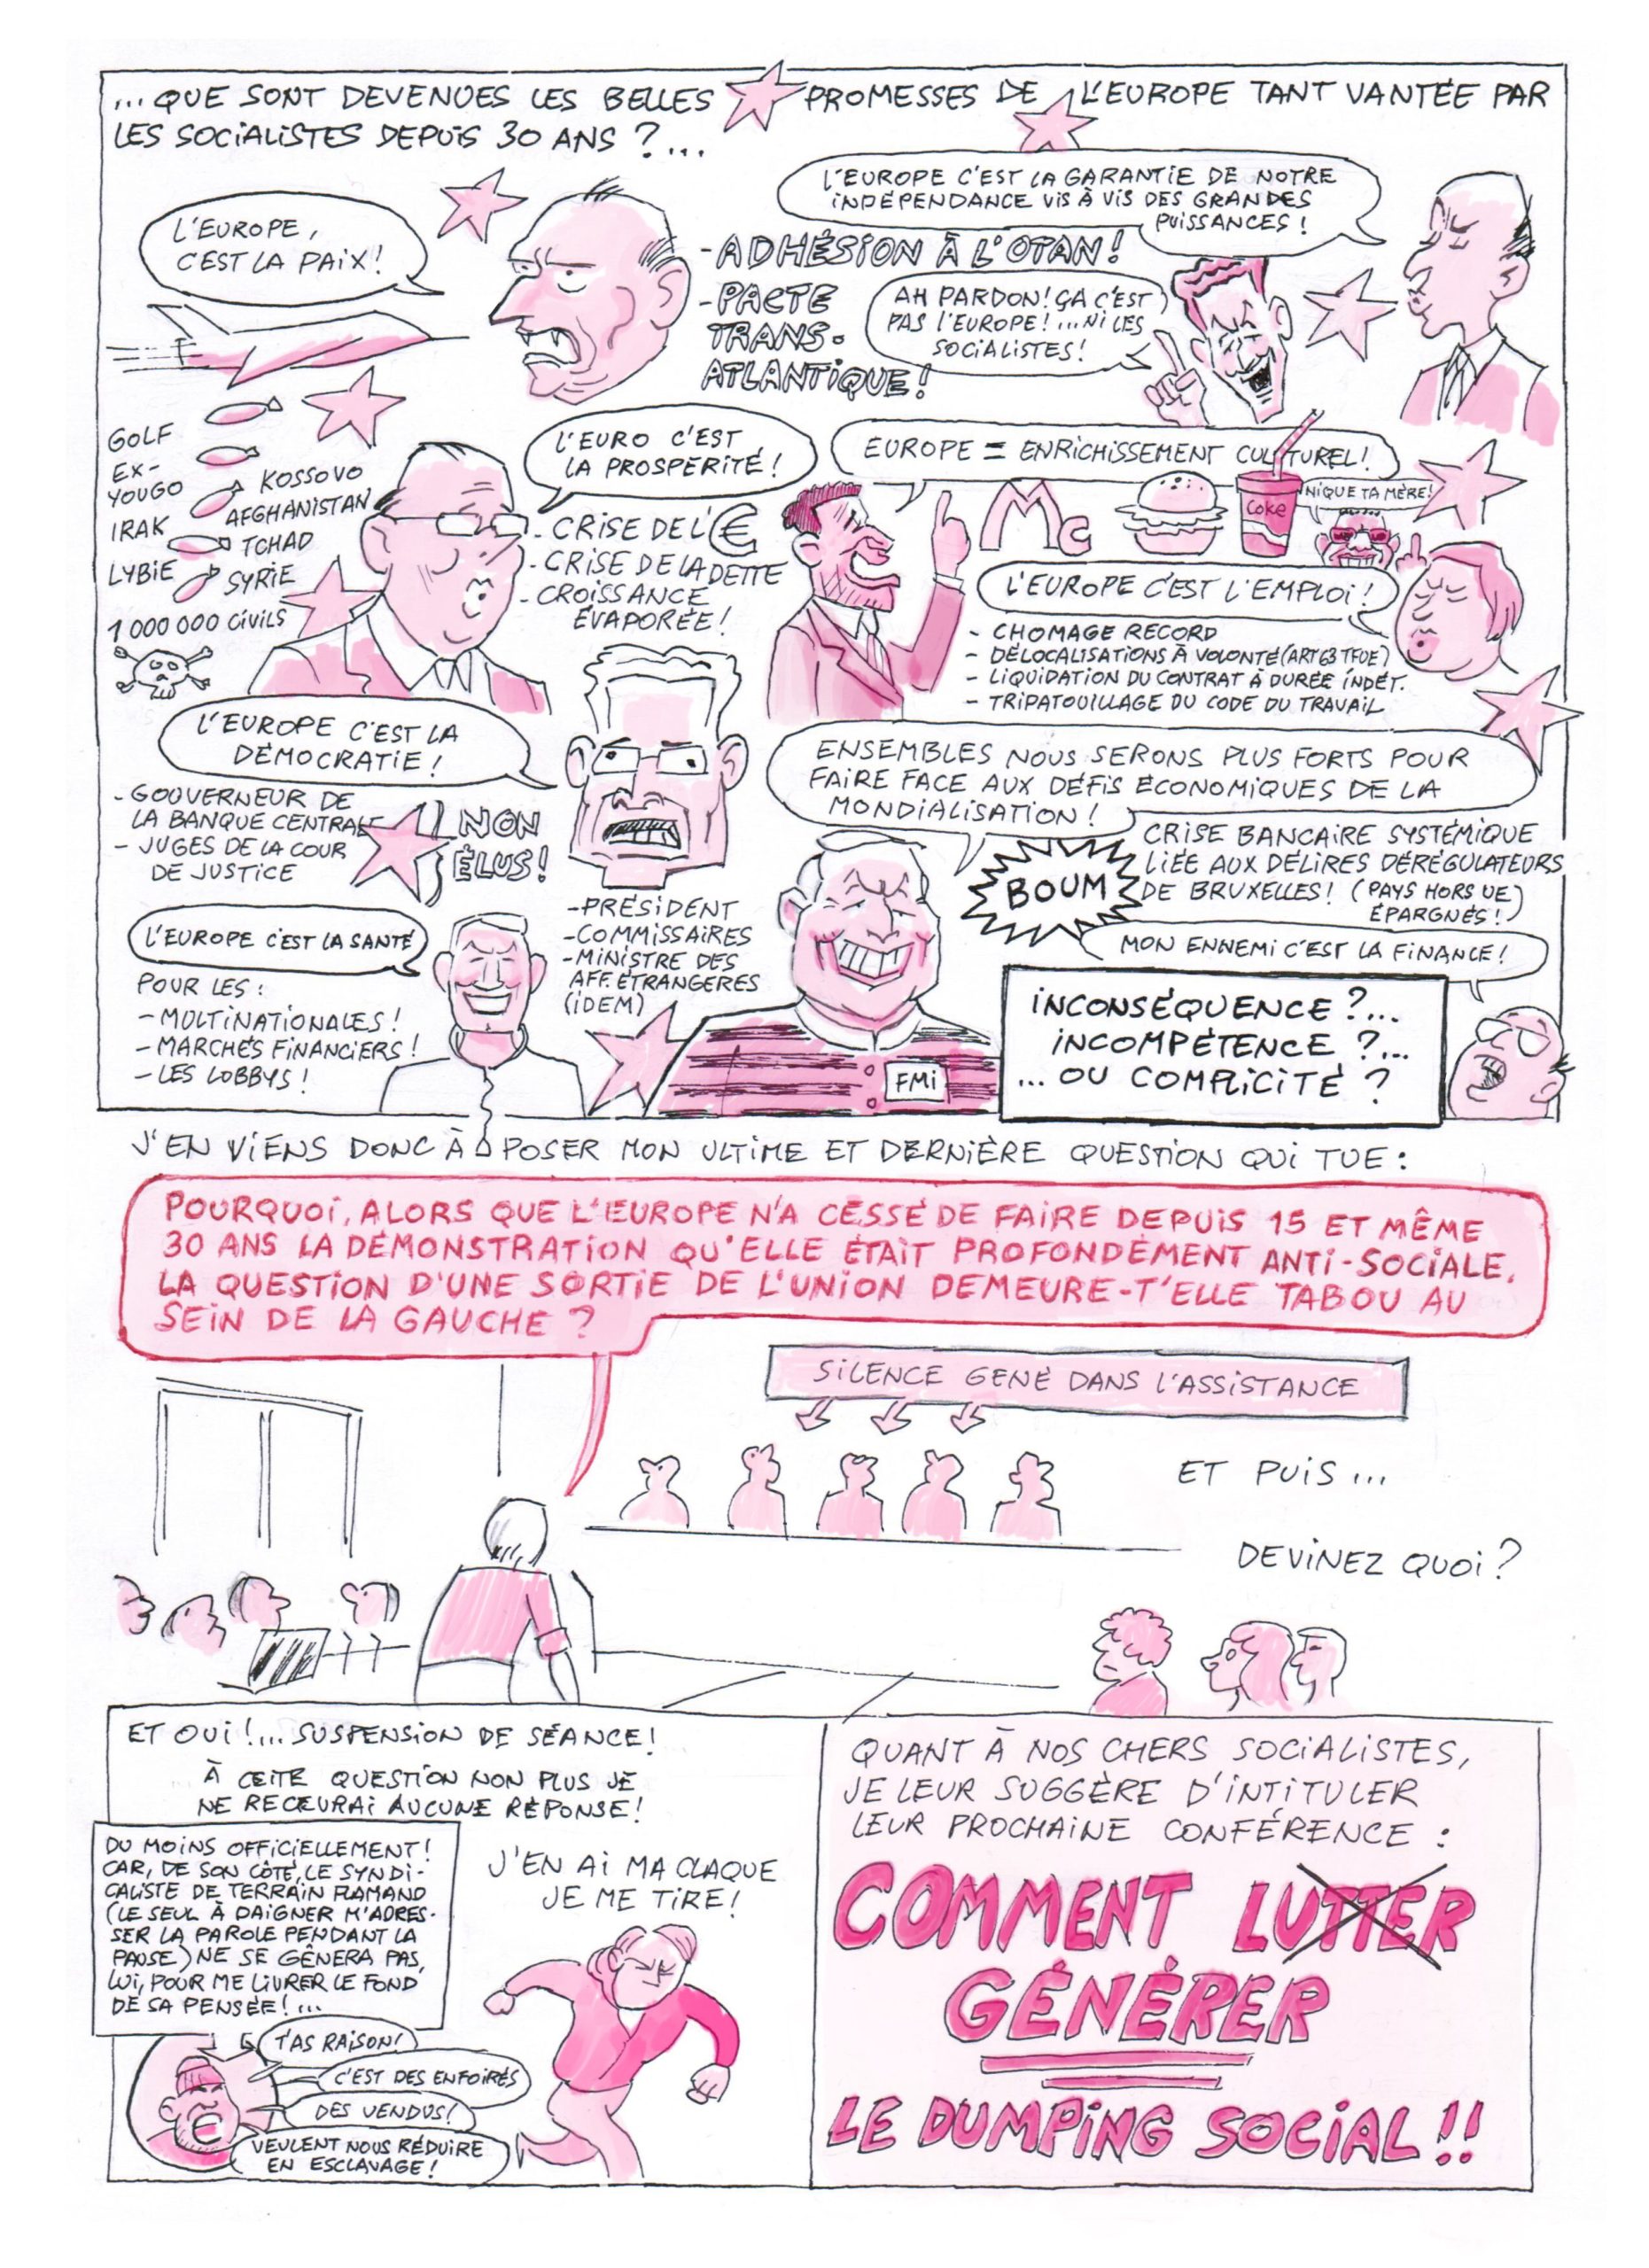 ... QUE SONT DEVENUES LES BELLES PROMESSES DE L'EUROPE TANT VANTÉE PAR
LES SOCIALISTES DEPUIS 30 ANS ?...
L'EUROPE,
C'EST LA PAIX !
L'EUROPE C'EST LA GARANTIE DE NOTRE
INDÉPENDANCE VIS À VIS DES GRANDES
PUISSANCES !
- ADHÉSION À L'OTAN !
- PACTE
TRANS-
ATLANTIQUE !
AH PARDON ! ÇA C'EST
PAS L'EUROPE ! ... NI LES
SOCIALISTES !
GOLF
EX-
YOUGO
IRAK
LYBIE
KOSSOVO
AFGHANISTAN
TCHAD
SYRIE
1 000 000 CIVILS
L'EURO C'EST
LA PROSPÉRITÉ !
- CRISE DE L'€
- CRISE DE LA DETTE
- CROISSANCE
ÉVAPORÉE !
EUROPE = ENRICHISSEMENT CULTUREL !
Mc
Coke
NIQUE TA MÈRE !
L'EUROPE C'EST L'EMPLOI !
- CHOMAGE RECORD
- DÉLOCALISATIONS À VOLONTÉ (ART 63 TFUE)
- LIQUIDATION DU CONTRAT À DURÉE INDÉT.
- TRIPATOUILLAGE DU CODE DU TRAVAIL
L'EUROPE C'EST LA
DÉMOCRATIE !
- GOUVERNEUR DE
LA BANQUE CENTRALE
- JUGES DE LA COUR
DE JUSTICE
NON
ÉLUS !
- PRÉSIDENT
- COMMISSAIRES
- MINISTRE DES
AFF. ÉTRANGÈRES
(IDEM)
ENSEMBLES NOUS SERONS PLUS FORTS POUR
FAIRE FACE AUX DÉFIS ÉCONOMIQUES DE LA
MONDIALISATION !
BOUM
CRISE BANCAIRE SYSTÉMIQUE
LIÉE AUX DÉLIRES DÉRÉGULATEURS
DE BRUXELLES ! (PAYS HORS UE)
ÉPARGNÉS !)
L'EUROPE C'EST LA SANTÉ
POUR LES :
- MULTINATIONALES !
- MARCHÉS FINANCIERS !
- LES LOBBYS !
FMI
MON ENNEMI C'EST LA FINANCE !
INCONSÉQUENCE ?...
INCOMPÉTENCE ?...
... OU COMPLICITÉ ?
J'EN VIENS DONC À POSER MON ULTIME ET DERNIÈRE QUESTION QUI TUE :
POURQUOI, ALORS QUE L'EUROPE N'A CESSÉ DE FAIRE DEPUIS 15 ET MÊME
30 ANS LA DÉMONSTRATION QU'ELLE ÉTAIT PROFONDÉMENT ANTI-SOCIALE,
LA QUESTION D'UNE SORTIE DE L'UNION DEMEURE-T'ELLE TABOU AU
SEIN DE LA GAUCHE ?
SILENCE GENÉ DANS L'ASSISTANCE
ET PUIS ...
DEVINEZ QUOI ?
ET OUI !... SUSPENSION DE SÉANCE !
À CETTE QUESTION NON PLUS JE
NE RECEVRAI AUCUNE RÉPONSE !
DU MOINS OFFICIELLEMENT !
CAR, DE SON CÔTÉ, LE SYNDI-
CALISTE DE TERRAIN FLAMAND
(LE SEUL À DAIGNER M'ADRES-
SER LA PAROLE PENDANT LA
PAUSE) NE SE GÊNERA PAS,
LUI, POUR ME LIVRER LE FOND
DE SA PENSÉE ! ...
J'EN AI MA CLAQUE
JE ME TIRE !
T'AS RAISON !
C'EST DES ENFOIRÉS
DES VENDUS !
VEULENT NOUS RÉDUIRE
EN ESCLAVAGE !
QUANT À NOS CHERS SOCIALISTES,
JE LEUR SUGGÈRE D'INTITULER
LEUR PROCHAINE CONFÉRENCE :
COMMENT LUTTER
GÉNÉRER
LE DUMPING SOCIAL !!